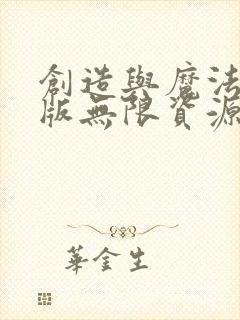 創造與魔法
版無限資源
華金生